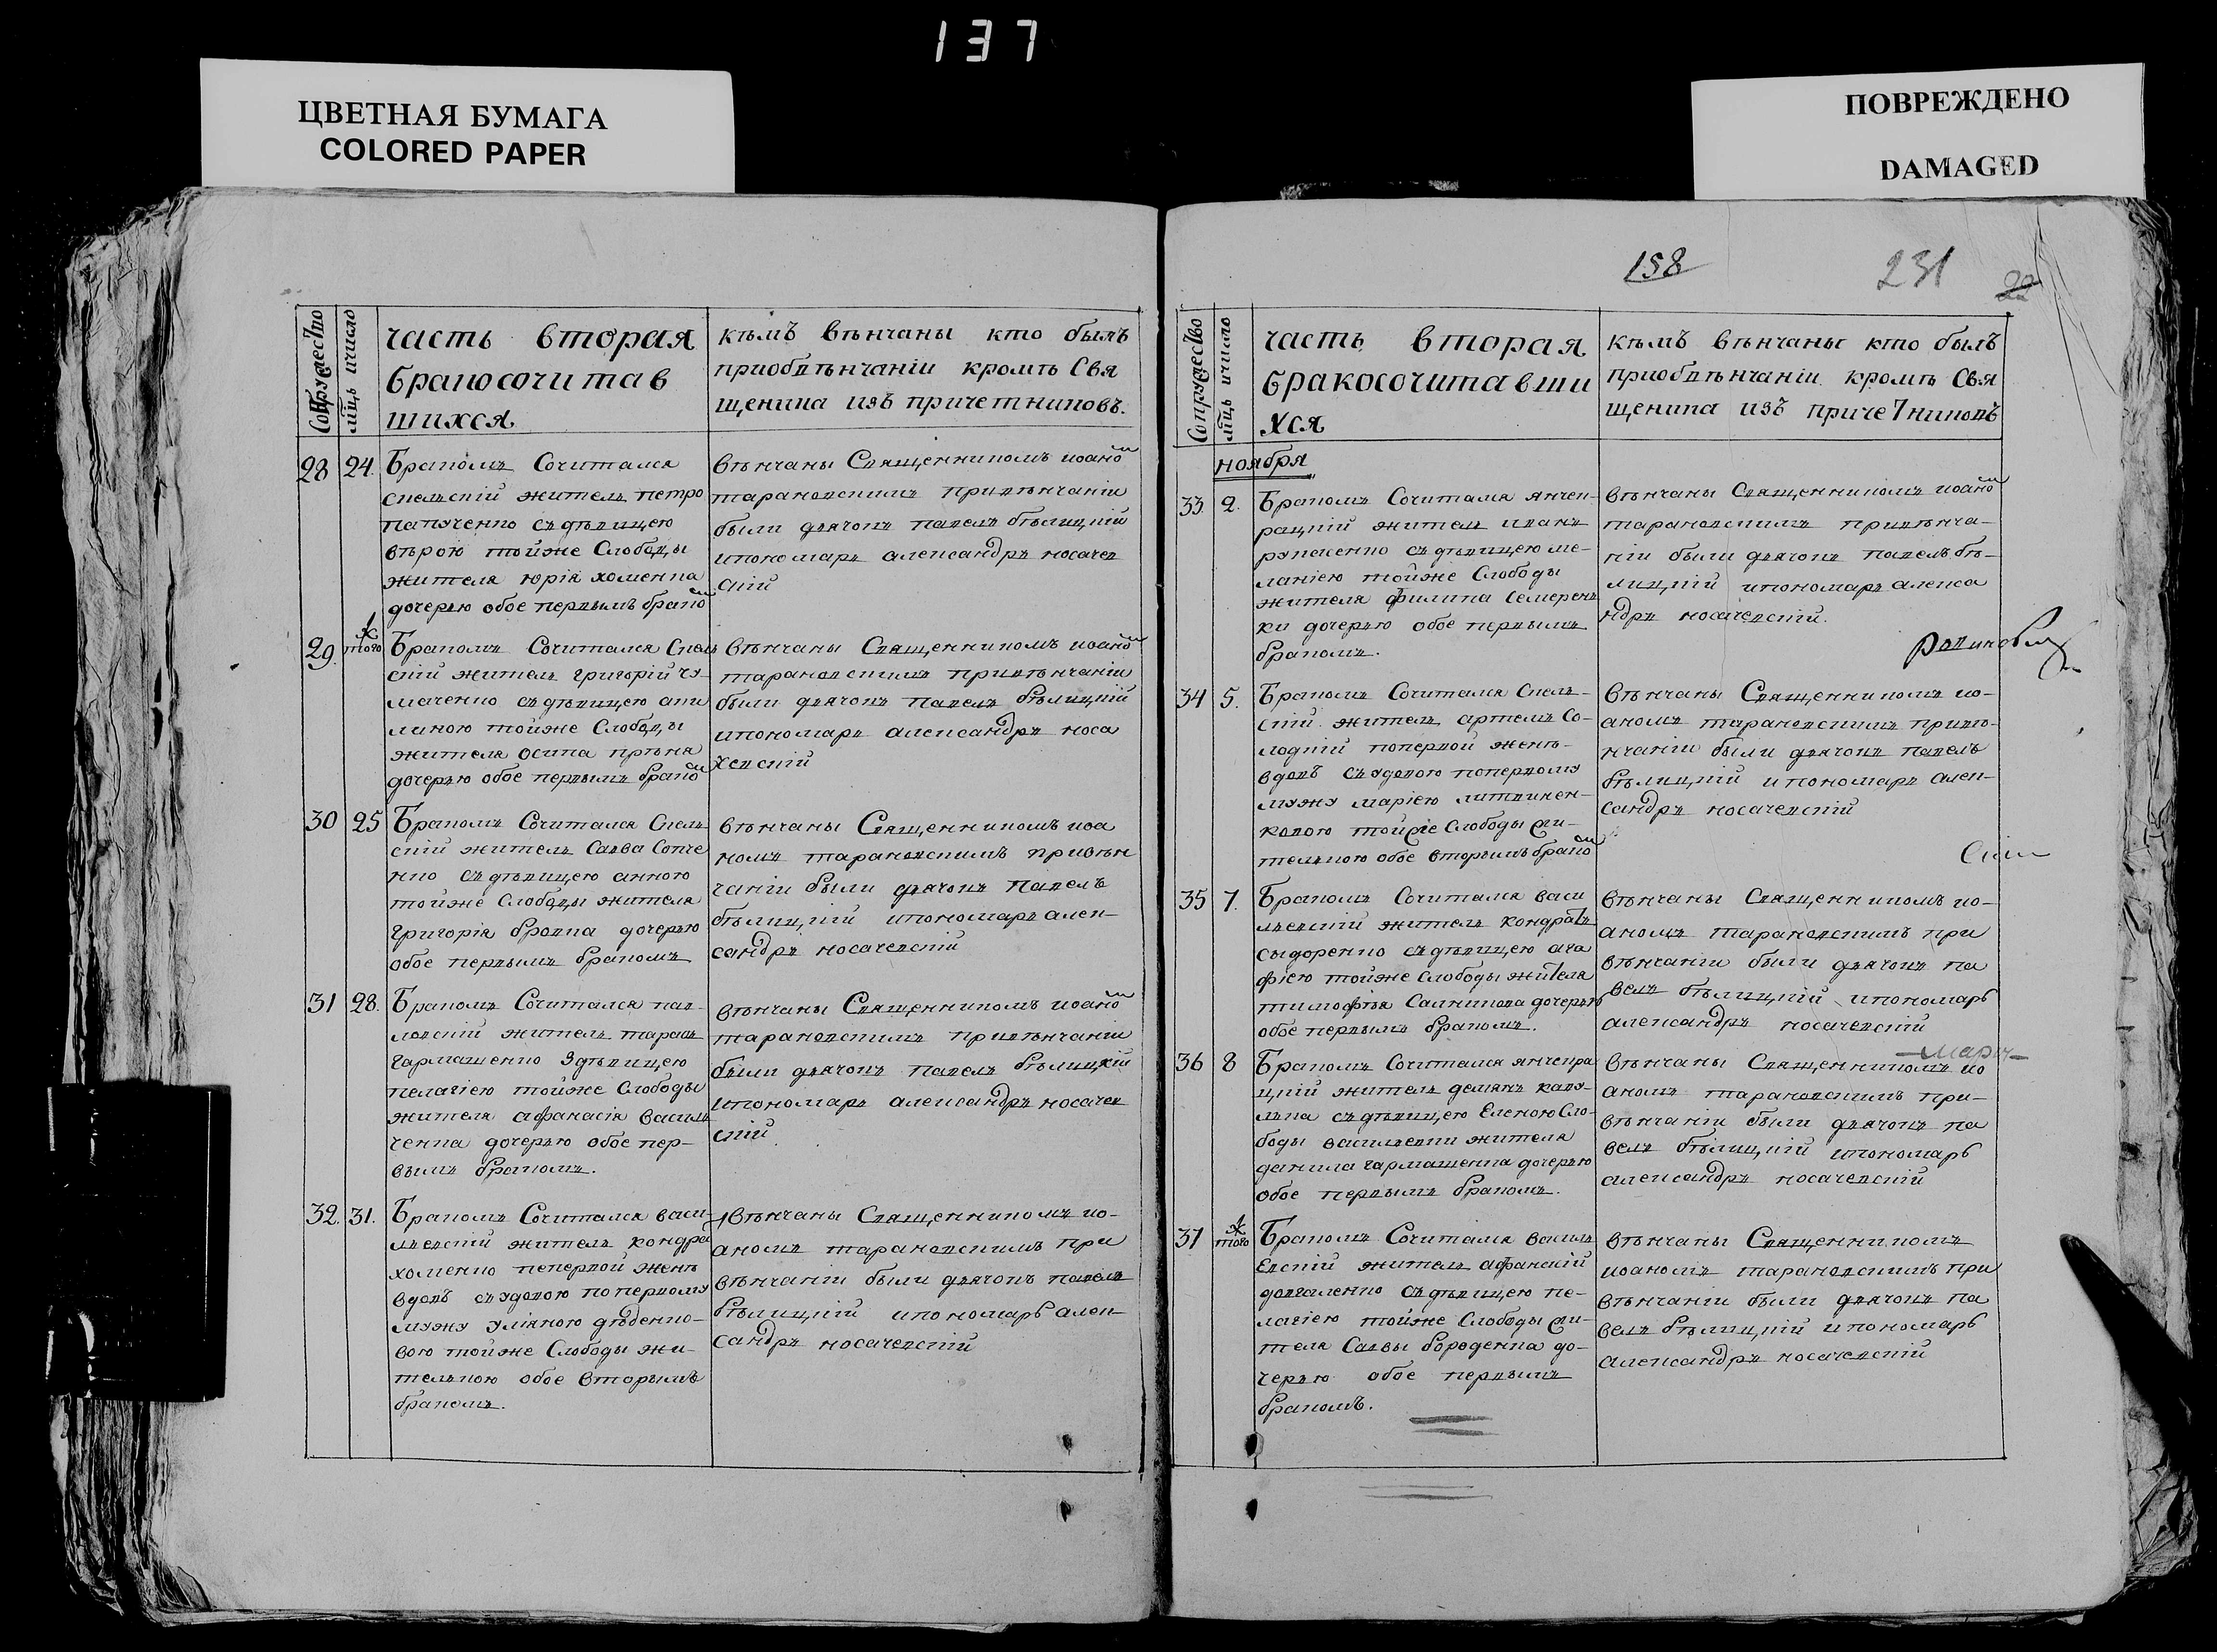 137
ЦВЕТНАЯ БУМАГА
COLORED PAPER
ПОВРЕЖДЕНО
DAMAGED
Сопружество
мцъ ичисло
часть вторая
бракосочитав
шихся
къмъ вънчаны кто былъ
приобвѣнчаніи кромѣ Свя
щеника изъ причетниковъ.
28 24.
Бракомъ Сочитался
Спельскій житель петро
папученко съдѣвицею
вѣрою тойже Слободы
жителя юрія хоменка
дочерью обое первымъ брако м
вѣнчаны Священникомъ иоано м
тарановскимъ привѣнчаніи
были дьячокъ павелъ бѣлицкій
ипономарь александръ носачев
скій
29. того ж
Бракомъ Сочитался Спель
скій житель григорій чу-
маченко съдѣвицею аки
линою тойже Слободы
жителя осипа
дочерью обое первымъ брако м
вѣнчаны Священникомъ иоано м
тарановскимъ привѣнчаніи
были дьячокъ павелъ бѣлицкій
ипономарь александръ носа
чевскій
30 25
Бракомъ Сочитался Спель
скій житель Савва Сопче
нко съдѣвицею анною
тойже Слободы жителя
григорія бровка дочерью
обое первымъ бракомъ
вѣнчаны Священникомъ иоа
номъ тарановскимъ привѣн
чаніи были дьячокъ павелъ
бѣлицкій ипономарь алек-
сандръ носачевскій
31 28.
Бракомъ Сочитался пав-
ловскій житель тарасъ
гармашенко здѣвицею
пелагіею тойже Слободы
жителя афанасія василь
ченка дочерью обое пер-
вымъ бракомъ.
вѣнчаны Священникомъ иоано м
тарановскимъ привѣнчаніи
были дьячокъ павелъ бѣлицкій
ипономарь александръ носачев
скій
32. 31.
Бракомъ Сочитался васи-
льевскій житель кондра
хоменко поперпой женѣ
вдовъ съудовою поперпому
мужу уліяною дѣденко-
вою тойже Слободы жи-
телькою обое вторымъ
бракомъ.
вѣнчаны Священникомъ ио-
аномъ тарановскимъ при
вѣнчаніи были дьячокъ павелъ
бѣлицкій ипономарь алек-
сандръ носачевскій
158
231
22
Сопружество
мцъ ичисло
часть вторая
бракосочитавши
хся
къмъ вѣнчаны кто былъ
приобвѣнчаніи кромѣ Свя
щеника изъ причетниковъ
ноября
33 2.
Бракомъ Сочитался янчек-
рацкій житель иванъ
рукасенко съдѣвицею ме-
ланіею тойже Слободы
жителя филипа Семерен
ки дочерью обое первымъ
бракомъ.
вѣнчаны Священникомъ иоано м
тарановскимъ привѣнча-
ніи были дьячокъ павелъ бѣ-
лицкій ипономарь алекса
ндръ носачевскій.
34 5.
Бракомъ Сочитался Спель-
скій житель артемъ Со-
лодкій поперпой женѣ-
вдовъ съудовою поперпому
мужу маріею литвинен-
ковою тойже Слободы жи-
телькою обое вторымъ брако м
вѣнчаны Священникомъ ио-
аномъ тарановскимъ привѣ-
нчаніи были дьячокъ павелъ
бѣлицкій ипономарь алек-
сандръ носачевскій
35 7.
Бракомъ Сочитался васи
льевскій житель кондратъ
сыдоренко съдѣвицею ага
фіею тойже Слободы жителя
тимофѣя Салникова дочерью
обое первымъ бракомъ.
вѣнчаны Священникомъ ио-
аномъ тарановскимъ при
вѣнчаніи были дьячокъ па
велъ бѣлицкій ипономарь
александръ носачевскій
36 8
Бракомъ Сочитался янчекра
цкій житель демянъ калу-
лька съдѣвицею Еленою Сло-
боды васильевки жителя
данила гармашенка дочерью
обое первымъ бракомъ.
вѣнчаны Священникомъ ио
аномъ тарановскимъ при-
вѣнчаніи были дьячокъ па
велъ бѣлицкій ипономарь
александръ носачевскій
37 того ж
Бракомъ Сочитался василь
Евскій житель афанскій
довгаленко съдѣвицею пе-
лагіею тойже Слободы жи-
теля Саввы бороденка до-
черью обое первымъ
бракомъ.
вѣнчаны Священникомъ
иоаномъ тарановскимъ при
вѣнчаніи были дьячокъ па
велъ бѣлицкій ипономарь
александръ носачевскій